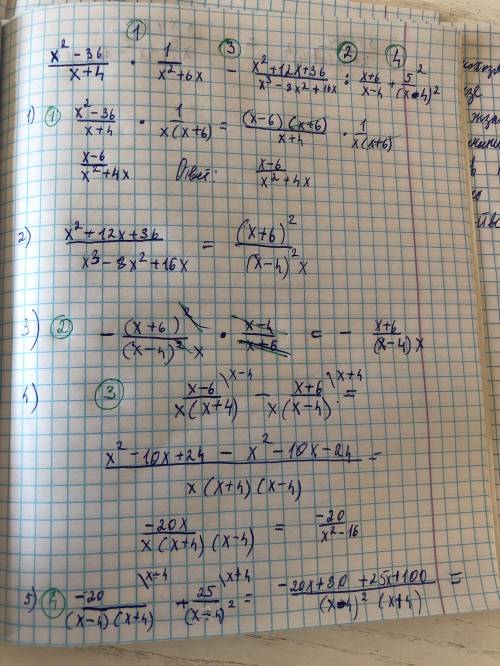 ① ③ ② ④
(x² − 36)/(x+4) · 1/(x²+6x) − (x²+12x+36)/(x³−8x²+16x) : (x+6)/(x−4) + 5²/(x−4)²
1) ① (x²−36)/(x+4) · 1/(x(x+6)) = ((x−6)(x+6))/(x+4) · 1/(x(x+6))
(x−6)/(x²+4x) Ответ: (x−6)/(x²+4x)
2) (x²+12x+36)/(x³−8x²+16x) = (x+6)²/((x−4)²x)
3) ② − (x+6)²/((x−4)²x) · (x−4)/(x+6) = − (x+6)/((x−4)x)
4) ③ (x−6)/(x(x+4)) \x−4 − (x+6)/(x(x−4)) \x+4 =
(x²−10x+24 − x²−10x−24)/(x(x+4)(x−4)) =
(−20x)/(x(x+4)(x−4)) = (−20)/(x²−16)
5) ④ (−20)/((x−4)(x+4)) \x−4 + 25/(x−4)² \x+4 = (−20x+80+25x+100)/((x−4)²(x+4)) =